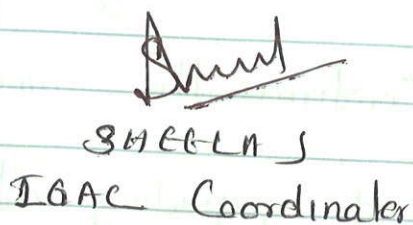 SHEELA S
IQAC Coordinator